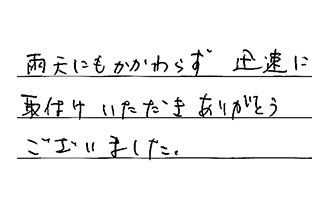 雨天にもかかわらず 迅速に
取付け いただき ありがとう
ございました。